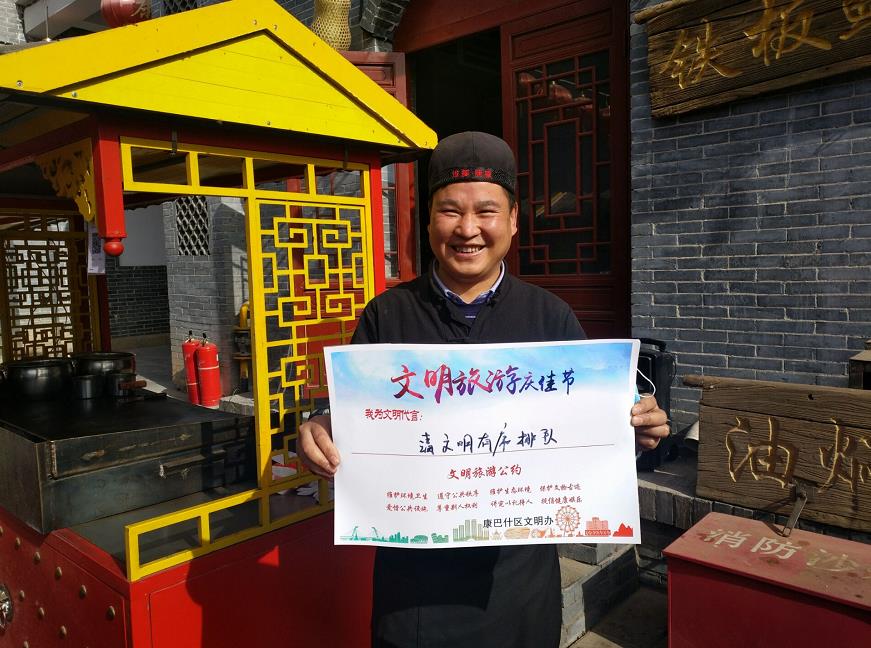 铁板
文明旅游庆佳节
我为文明代言：
请文明有序排队
文明旅游公约
维护环境卫生 遵守公共秩序 维护生态环境 保护文物古迹
爱惜公共设施 尊重别人权利 讲究以礼待人 提倡健康娱乐
康巴什区文明办
油炸
消防沙